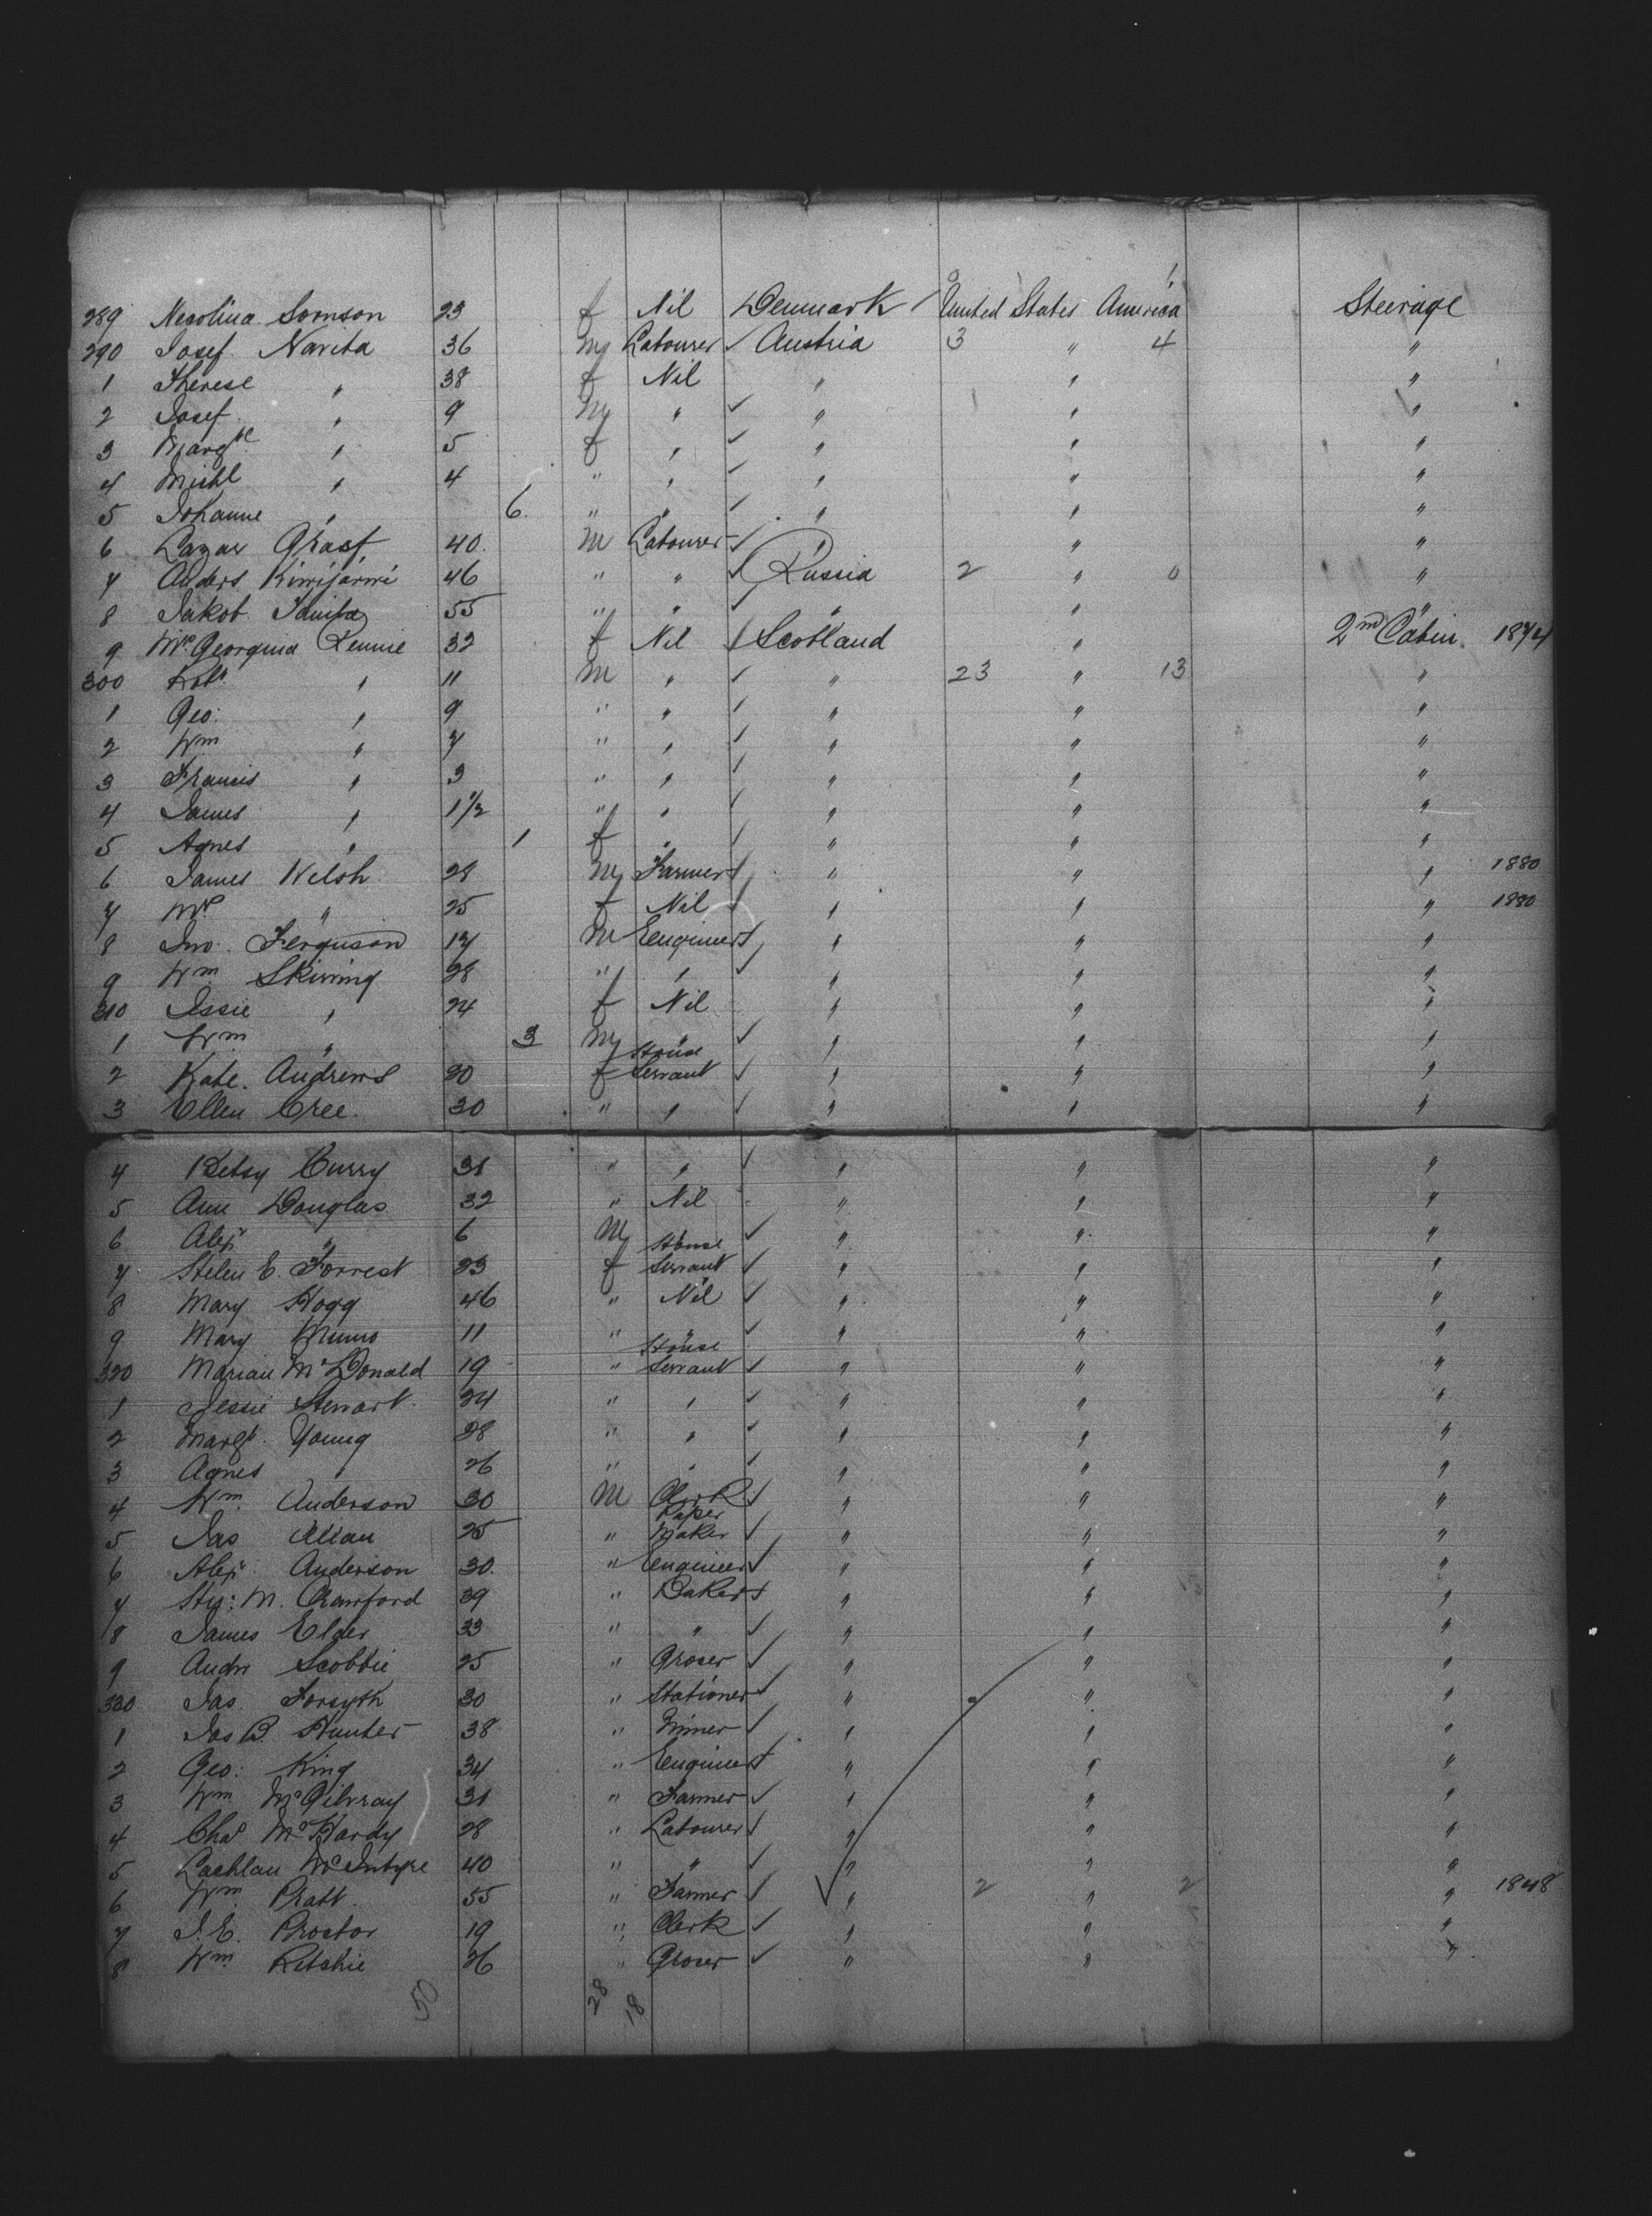 289 Necolina Sornson 23 f Nil Denmark United States America Steerage
290 Josef Navita 36 m Labourer ✓ Austria 3 " 4 "
1 Therese " 38 f Nil " " "
2 Josef " 9 m " ✓ " " "
3 Margte " 5 f " ✓ " " "
4 Michl " 4 " " ✓ " " "
5 Johanne " 6 " " ✓ " " "
6 Lazar 40 m Labourer ✓ " " "
7 Anders Kinnijarvi 46 " " ✓ Russia 2 " 0 "
8 Jakob 55 " " ✓ " " "
9 Mrs Georgina Rennie 32 f Nil ✓ Scotland " 2nd Cabin 1874
300 Robt " 11 m " ✓ " 23 " 13 "
1 Geo: " 9 " " ✓ " " "
2 Wm " 7 " " ✓ " " "
3 Francis " 3 " " ✓ " " "
4 James " 1 1/2 " " ✓ " " "
5 Agnes " 1 f " ✓ " " "
6 James Welsh 28 m Farmer ✓ " " " 1880
7 Mrs " 25 f Nil ✓ " " " 1880
8 Jno. Ferguson 17 m Engineer ✓ " " "
9 Wm Skirving 28 " " ✓ " " "
310 Jessie " 24 f Nil " " "
1 Wm " 3 m " ✓ " " "
2 Kate Andrews 20 f House Servant ✓ " " "
3 Ellen Cree 30 " " ✓ " " "
4 Betsy Curry 31 " " ✓ " " "
5 Ann Douglas 32 " Nil " " "
6 Alexr " 6 m " ✓ " " "
7 Helen E. Forrest 23 f House Servant ✓ " " "
8 Mary Hogg 46 " Nil ✓ " " "
9 Mary Munro 11 " " ✓ " " "
320 Marian McDonald 19 " House Servant ✓ " " "
1 Jessie Stewart 24 " " ✓ " " "
2 Margt. Young 28 " " ✓ " " "
3 Agnes " 26 " " ✓ " " "
4 Wm. Anderson 30 m Clerk ✓ " " "
5 Jas Allan 25 " Paper Maker ✓ " " "
6 Alexr Anderson 30 " Engineer ✓ " " "
7 Hy: M. Crawford 39 " Baker ✓ " " "
8 James Elder 33 " " ✓ " " "
9 Andw Scobbie 25 " Groser ✓ " " "
330 Jas Forsyth 30 " Stationer ✓ " " "
1 Jas B. Hunter 38 " Miner ✓ " " "
2 Geo: King 34 " Engineer ✓ " " "
3 Wm McGilvray 31 " Farmer ✓ " " "
4 Chas McHardy 28 " Labourer ✓ " " "
5 Lachlan McIntyre 40 " " ✓ " " "
6 Wm. Pratt 55 " Farmer ✓ " 2 " 2 " 1848
7 J. E. Proctor 19 " Clerk ✓ " " "
8 Wm Ritchie 26 " Groser ✓ " " "
50 28 18